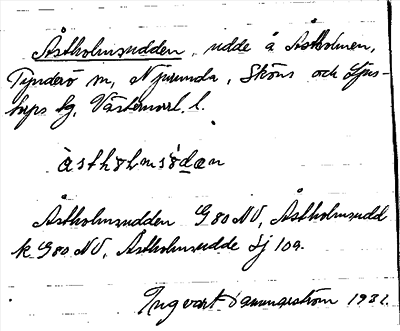 Åstholmsudden, udde å Åstholmen,
Tynderö sn, Njurunda, Sköns och Ljus-
torps tg, Västernorrl. l.
àsthòlmsùdan
Åstholmsudden G80 NV, Åstholmsudd
k G80 NV, Åstholmsudde Sj 109.
Ingvart 1932.